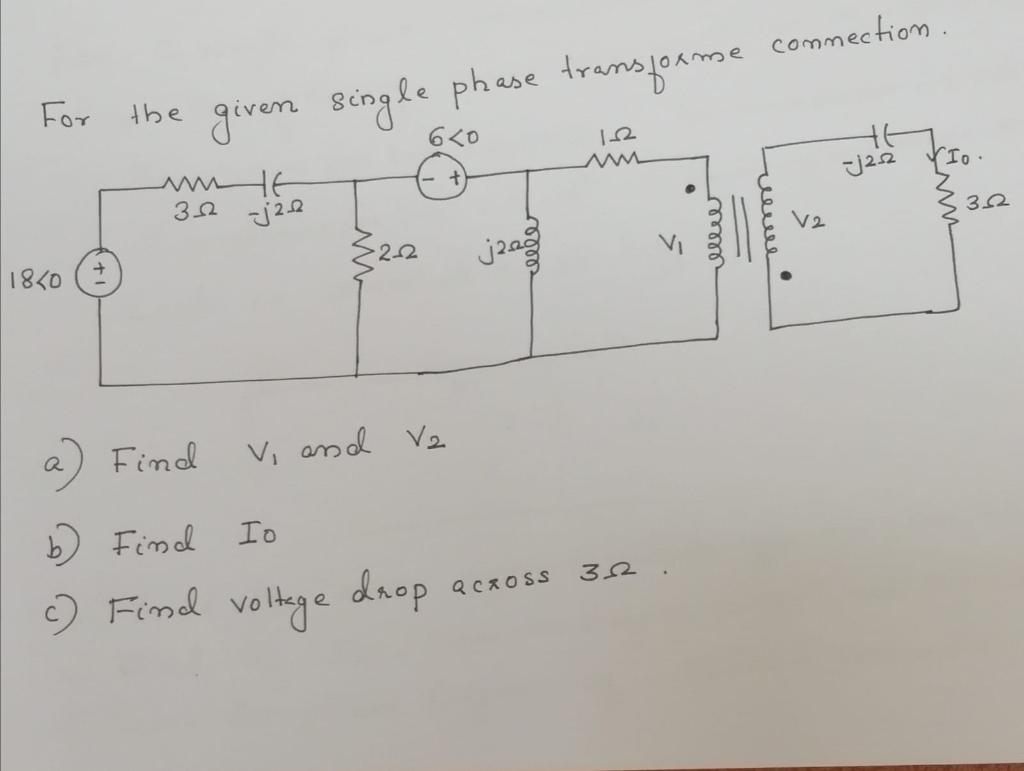 For the given single phase transforme connection.
6<0
1Ω
-j2Ω
Io.
3Ω
-j2Ω
3Ω
2Ω
j2Ω
V1
V2
18<0
+
-
- +
a) Find V1 and V2
b) Find Io
c) Find voltage drop across 3Ω.